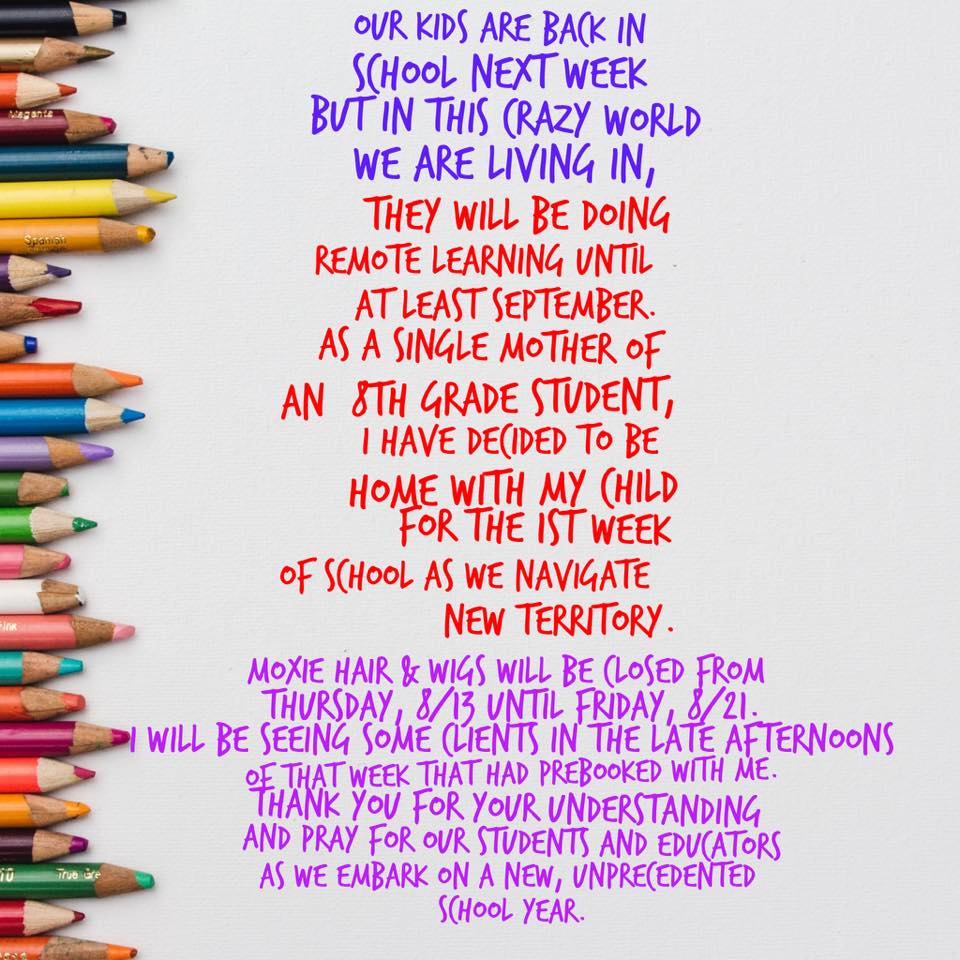 OUR KIDS ARE BACK IN
SCHOOL NEXT WEEK
BUT IN THIS CRAZY WORLD
WE ARE LIVING IN,
THEY WILL BE DOING
REMOTE LEARNING UNTIL
AT LEAST SEPTEMBER.
AS A SINGLE MOTHER OF
AN 8TH GRADE STUDENT,
I HAVE DECIDED TO BE
HOME WITH MY CHILD
FOR THE 1ST WEEK
OF SCHOOL AS WE NAVIGATE
NEW TERRITORY.
MOXIE HAIR & WIGS WILL BE CLOSED FROM
THURSDAY, 8/13 UNTIL FRIDAY, 8/21.
I WILL BE SEEING SOME CLIENTS IN THE LATE AFTERNOONS
OF THAT WEEK THAT HAD PREBOOKED WITH ME.
THANK YOU FOR YOUR UNDERSTANDING
AND PRAY FOR OUR STUDENTS AND EDUCATORS
AS WE EMBARK ON A NEW, UNPRECEDENTED
SCHOOL YEAR.
Magenta
Spanish